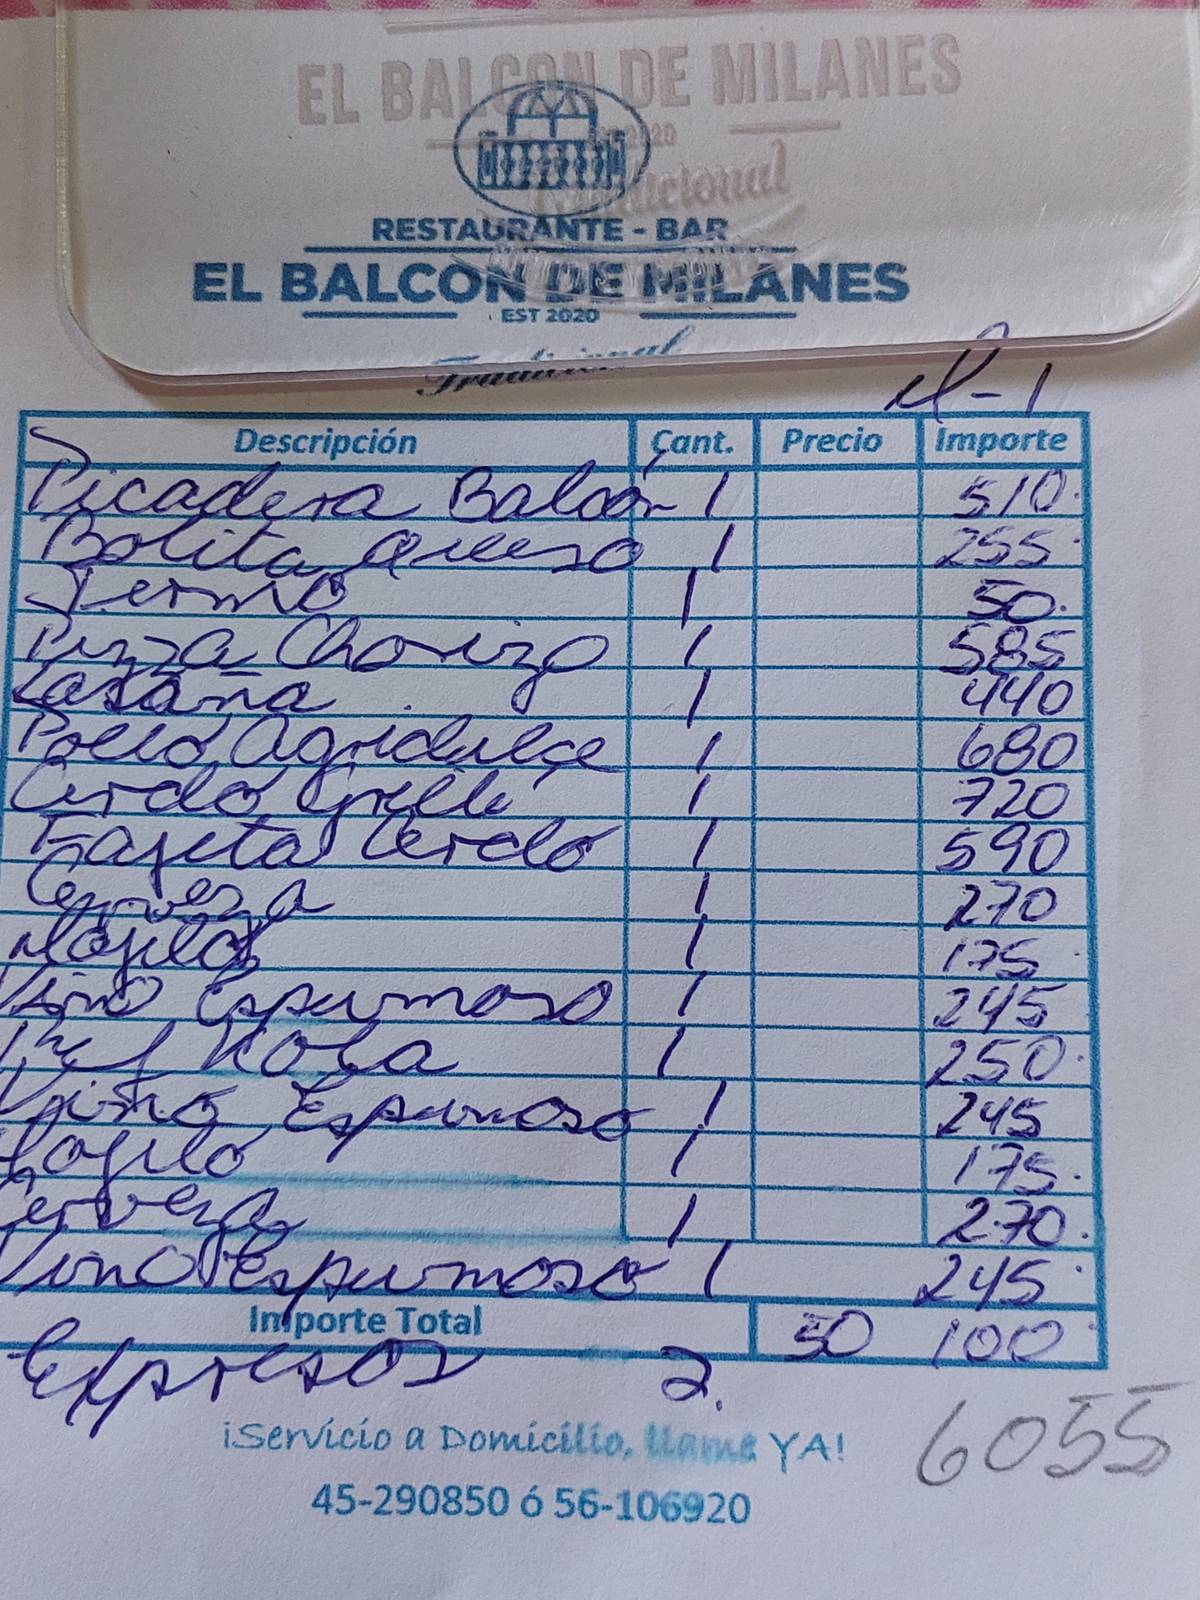 EL BALCON DE MILANES
Tradicional
RESTAURANTE - BAR
EL BALCON DE MILANES
EST 2020
Tradicional
M-1
Descripción Cant. Precio Importe
Picadera Balcón 1 510
Bolita Queso 1 255
Termo 1 50
Pizza Chorizo 1 585
Lasaña 1 440
Pollo Agridulce 1 680
Cerdo Grille 1 720
Fajita Cerdo 1 590
Cerveza 1 270
Mojito 1 175
Vino Espumoso 1 245
Kola 1 250
Vino Espumoso 1 245
Mojito 1 175
Cerveza 1 270
Vino Espumoso 1 245
Importe Total 50 100
Expresos 2.
6055
¡Servicio a Domicilio, llame YA!
45-290850 ó 56-106920